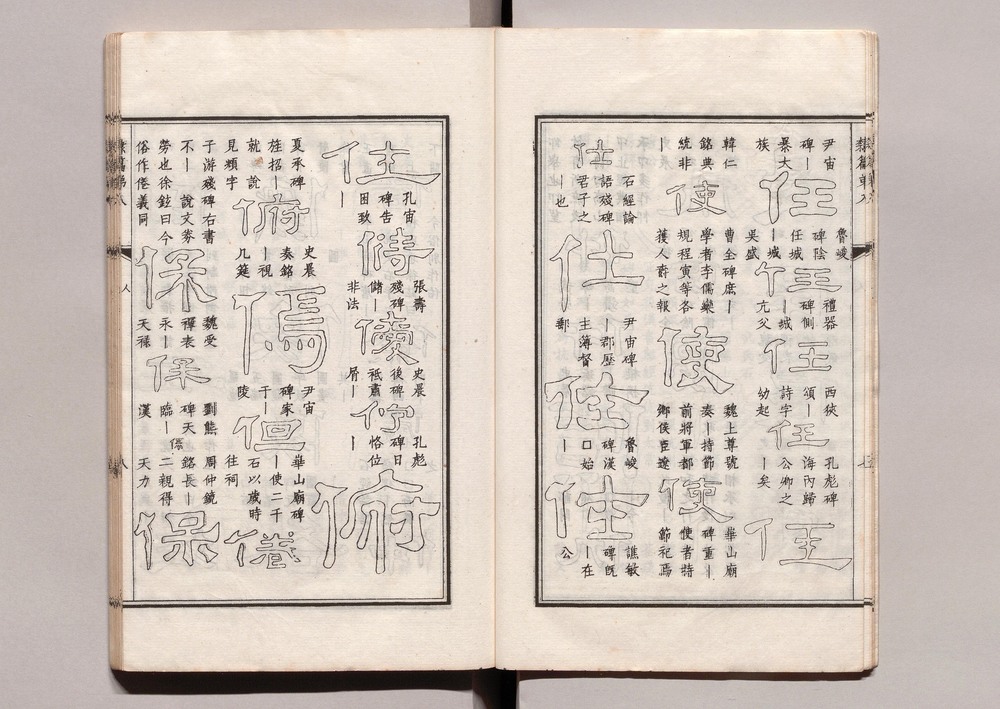 隸篇第八
尹宙
碑丨
暴大
族
任
魯峻
碑陰
任城
丨城
吳盛
任
禮器
碑側
丨城
亢父
任
西狹
頌丨
詩字
幼起
任
孔彪碑
海內歸
公卿之
丨矣
任
韓仁
銘典
統非
丨
使
曹全碑庶丨
學者李儒欒
規程寅等各
獲人爵之報
使
魏上尊號
奏丨持節
前將軍都
鄉侯臣遼
使
華山廟
碑重丨
使者持
節祀焉
仕
石經論
語殘碑
君子之
丨也
仕
尹宙碑
丨郡歷
主薄督
郵
仕
魯峻
碑漢
口始
丨
仕
譙敏
碑旣
丨在
公
仕
孔宙
碑告
困致
丨
偫
張壽
殘碑
儲丨
非法
僾
史晨
後碑
祗肅
屑丨
佇
孔彪
碑日
恪位
丨
俯
夏承碑
旌招丨
就 說
見頫字
俯
史晨
奏銘
丨視
几筵
傿
尹宙
碑家
于丨
陵
但
華山廟碑
丨使二千
石以歲時
往祠
倦
子游殘碑右書
不丨 說文劵
勞也徐鉉曰今
俗作倦義同
保
魏受
禪表
永丨
天祿
保
劉熊
碑天
臨丨
漢
周仲鏡
銘長丨
二親得
天力
保